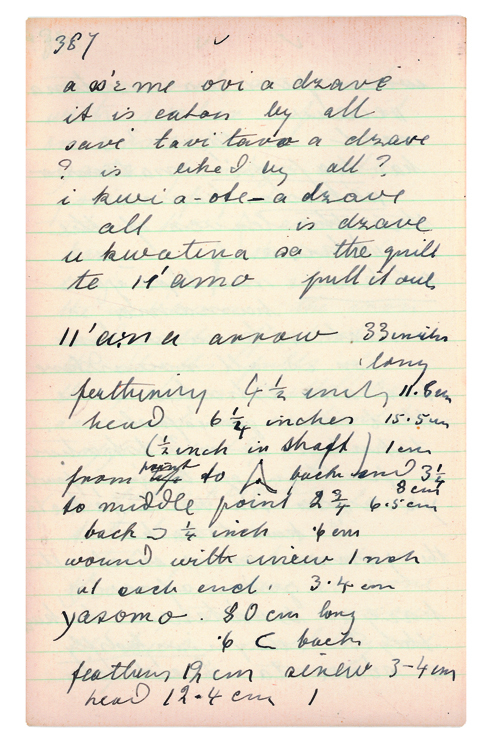 387
a s'eme ovi a dzave
it is eaten by all
save tavi tava a dzave
? is liked by all?
i kwi a-ote-a dzave
all is dzave
u kwatina sa the quill
te 11'amo pull it out
11'ana arrow 33 inches
long
feathering 4 1/2 inch 11.8 cm
head 6 1/4 inches 15.5 cm
(1/2 inch in shaft) 1 cm
from point to back end 3 1/4
8 cm
to middle point 2 3/4 6.5 cm
back 1/4 inch .6 cm
wound with sinew 1 inch
at each end. 3.4 cm
yasomo. 80 cm long
.6 back
feathers 12 cm sinew 3-4 cm
head 12.4 cm 1